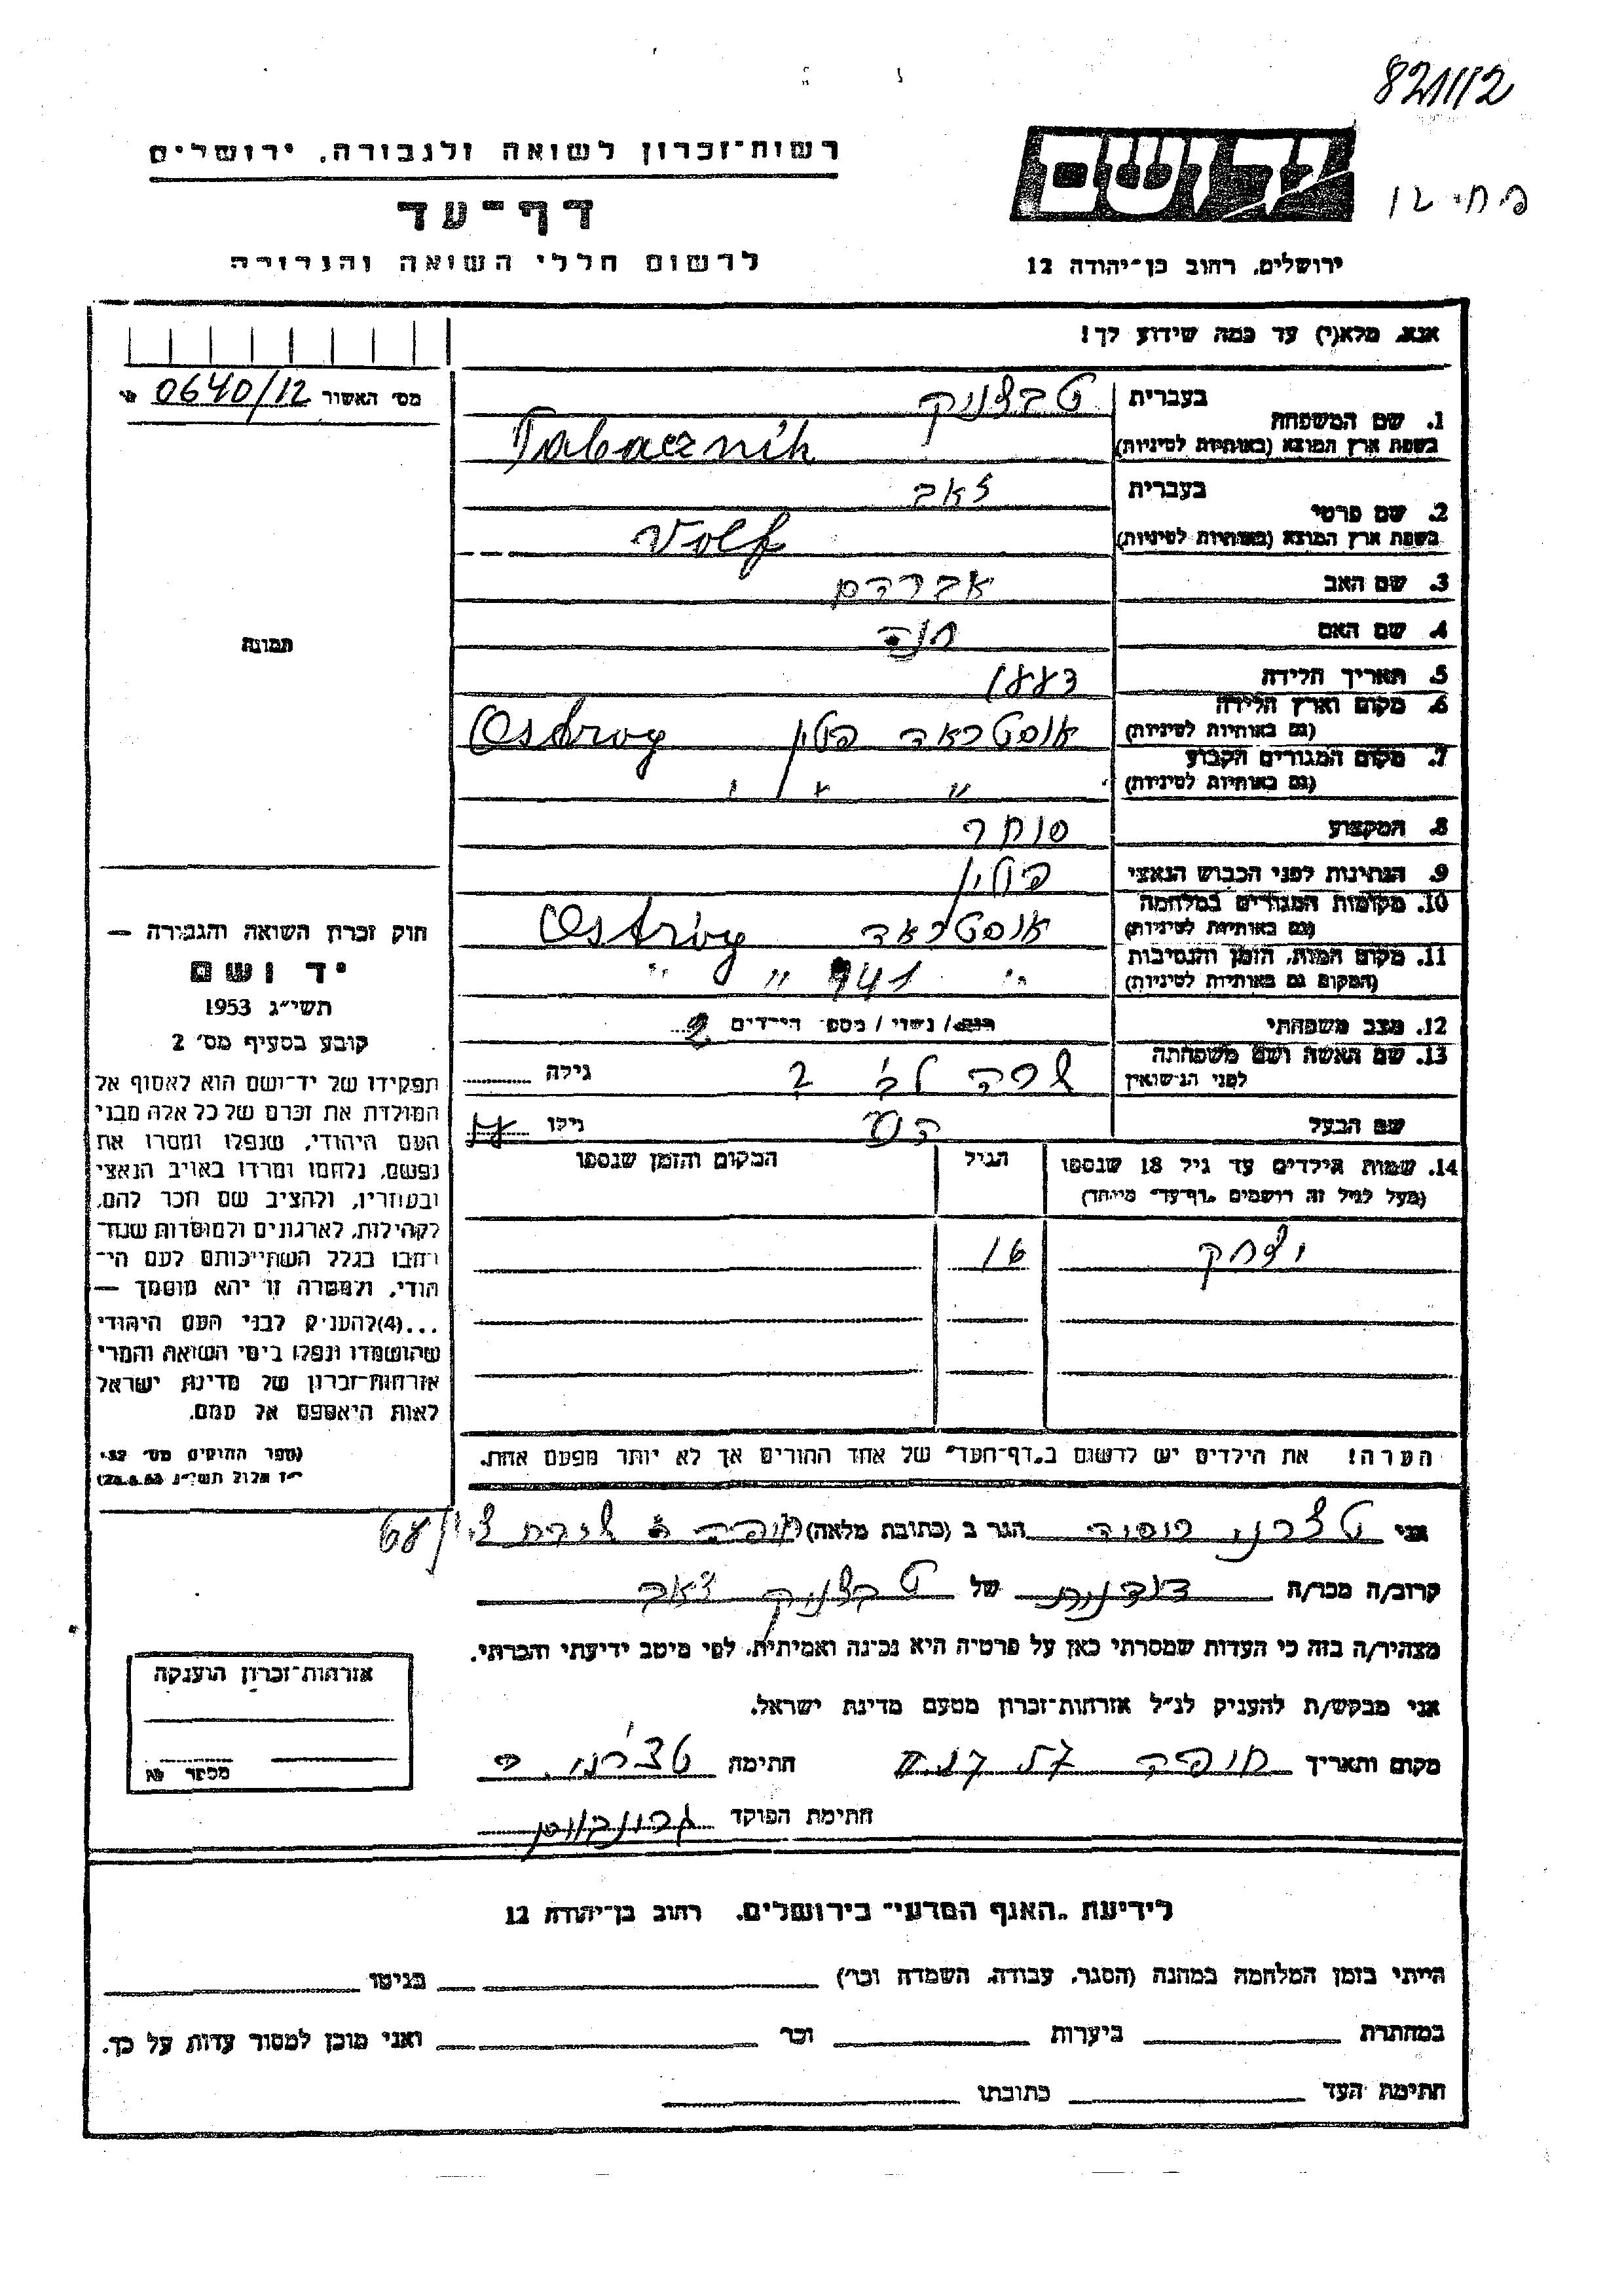 821/12
רשות־זכרון לשואה ולגבורה, ירושלים
דף־עד
לרשום חללי השואה והגבורה
יד ושם
ירושלים, רחוב בן־יהודה 12
אנא, מלא(י) עד כמה שידוע לך!
מס׳ האשור 0640/12
1. שם המשפחה
בעברית טבצניק
בשפת ארץ המוצא (באותיות לטיניות) Tabacznik
2. שם פרטי
בעברית זאב
בשפת ארץ המוצא (באותיות לטיניות) Volf
3. שם האב אברהם
4. שם האם חנה
תמונה
5. תאריך הלידה
6. מקום וארץ הלידה (גם באותיות לטיניות) אוסטראה פולין Ostrog
7. מקום המגורים הקבוע (גם באותיות לטיניות) " " "
8. המקצוע סוחר
9. הנתינות לפני הכבוש הנאצי פולין
10. מקומות המגורים במלחמה (גם באותיות לטיניות) אוסטראה Ostrog
11. מקום המות, הזמן והנסיבות (המקום גם באותיות לטיניות) " 941 " "
12. מצב משפחתי רווק / נשוי / מספר הילדים 2
13. שם האשה ושם משפחתה לפני הנישואין שרה גילה
שם הבעל גילו
14. שמות הילדים עד גיל 18 שנספו (מעל לגיל זה רושמים „דף־עד" מיוחד)
הגיל
המקום והזמן שנספו
יצחק 16
הערה! את הילדים יש לרשום ב„דף־העד" של אחד ההורים אך לא יותר מפעם אחת.
חוק זכרון השואה והגבורה —
יד ושם
תשי״ג 1953
קובע בסעיף מס׳ 2
תפקידו של יד־ושם הוא לאסוף אל
המולדת את זכרם של כל אלה מבני
העם היהודי, שנפלו ומסרו את
נפשם, נלחמו ומרדו באויב הנאצי
ובעוזריו, ולהציב שם וזכר להם,
לקהילות, לארגונים ולמוסדות שנח־
רבו בגלל השתייכותם לעם הי־
הודי, ולמטרה זו יהא מוסמך —
...(4)להעניק לבני העם היהודי
שהושמדו ונפלו בימי השואה והמרי
אזרחות־זכרון של מדינת ישראל
לאות היאספם אל עמם.
(ספר החוקים מס׳ 132,
י״ז אלול תשי״ג 28.8.53)
אני הגר ב (כתובת מלאה) 68
קרוב/ה מכר/ה של טבצניק זאב
מצהיר/ה בזה כי העדות שמסרתי כאן על פרטיה היא נכונה ואמיתית, לפי מיטב ידיעתי והכרתי.
אני מבקש/ת להעניק לנ״ל אזרחות־זכרון מטעם מדינת ישראל.
מקום ותאריך חיפה חתימה
חתימת הפוקד
אזרחות־זכרון הוענקה
מספר №
לידיעת „האגף המדעי" בירושלים, רחוב בן־יהודה 12
הייתי בזמן המלחמה במחנה (הסגר, עבודה, השמדה וכו׳) בגיטו
במחתרת ביערות וכו׳ ואני מוכן למסור עדות על כך.
חתימת העד כתובתו